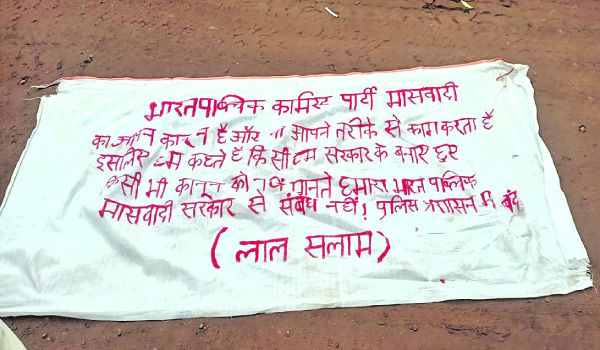 भारतपाब्लिक कामिस्ट पार्टी मासवादी
का अपना कानून है और वो आपने तरीके से काम करता है
इसलिए हम कहते है कि सी हम सरकार के बनाए हुए
कि सी भी कानून को नहीं मानते हमारा भारत पाब्लिक
मासवादी सरकार से संबंध नही! पुलिस प्रशासन में बंद
(लाल सलाम)